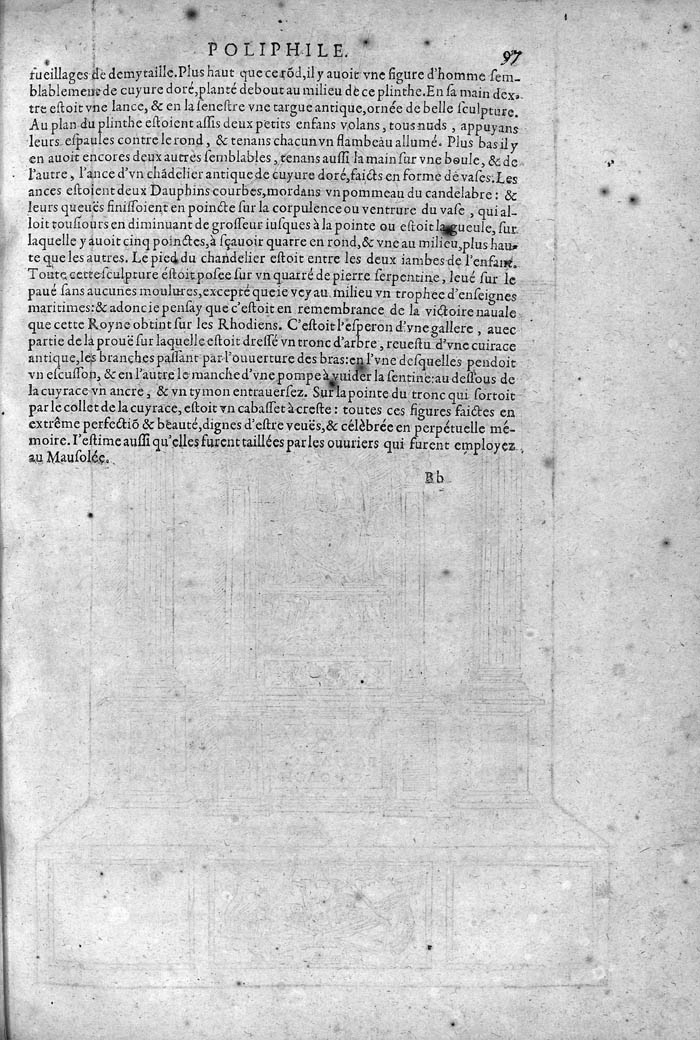 POLIPHILE.
97
fueillages de demytaille. Plus haut que ce rõd, il y auoit vne figure d'homme sem-
blablement de cuyure doré, planté debout au milieu de ce plinthe. En sa main dex-
tre estoit vne lance, & en la senestre vne targue antique, ornée de belle sculpture.
Au plan du plinthe estoient assis deux petits enfans volans, tous nuds, appuyans
leurs espaules contre le rond, & tenans chacun vn flambeau allumé. Plus bas il y
en auoit encores deux autres semblables, tenans aussi la main sur vne boule, & de
l'autre, l'ance d'vn chãdelier antique de cuyure doré, faicts en forme de vases. Les
ances estoient deux Dauphins courbes, mordans vn pommeau du candelabre: &
leurs queuës finissoient en poincte sur la corpulence ou ventrure du vase, qui al-
loit tousiours en diminuant de grosseur iusques à la pointe ou estoit la gueule, sur
laquelle y auoit cinq poinctes, à sçauoir quatre en rond, & vne au milieu, plus hau-
te que les autres. Le pied du chandelier estoit entre les deux iambes de l'enfant.
Toute cette sculpture estoit posee sur vn quarré de pierre serpentine, leué sur le
paué sans aucunes moulures, excepté que ie vey au milieu vn trophee d'enseignes
maritimes: & adonc ie pensay que c'estoit en remembrance de la victoire nauale
que cette Royne obtint sur les Rhodiens. C'estoit l'esperon d'vne gallere, auec
partie de la prouë sur laquelle estoit dressé vn tronc d'arbre, reuestu d'vne cuirace
antique, les branches passant par l'ouuerture des bras: en l'vne desquelles pendoit
vn escusson, & en l'autre le manche d'vne pompe à vuider la sentine: au dessous de
la cuyrace vn ancre, & vn tymon entrauersez. Sur la pointe du tronc qui sortoit
par le collet de la cuyrace, estoit vn cabasset à creste: toutes ces figures faictes en
extrême perfectiõ & beauté, dignes d'estre veuës, & célèbrée en perpétuelle mé-
moire. I'estime aussi qu'elles furent taillées par les ouuriers qui furent employez
au Mausolée.
Bb